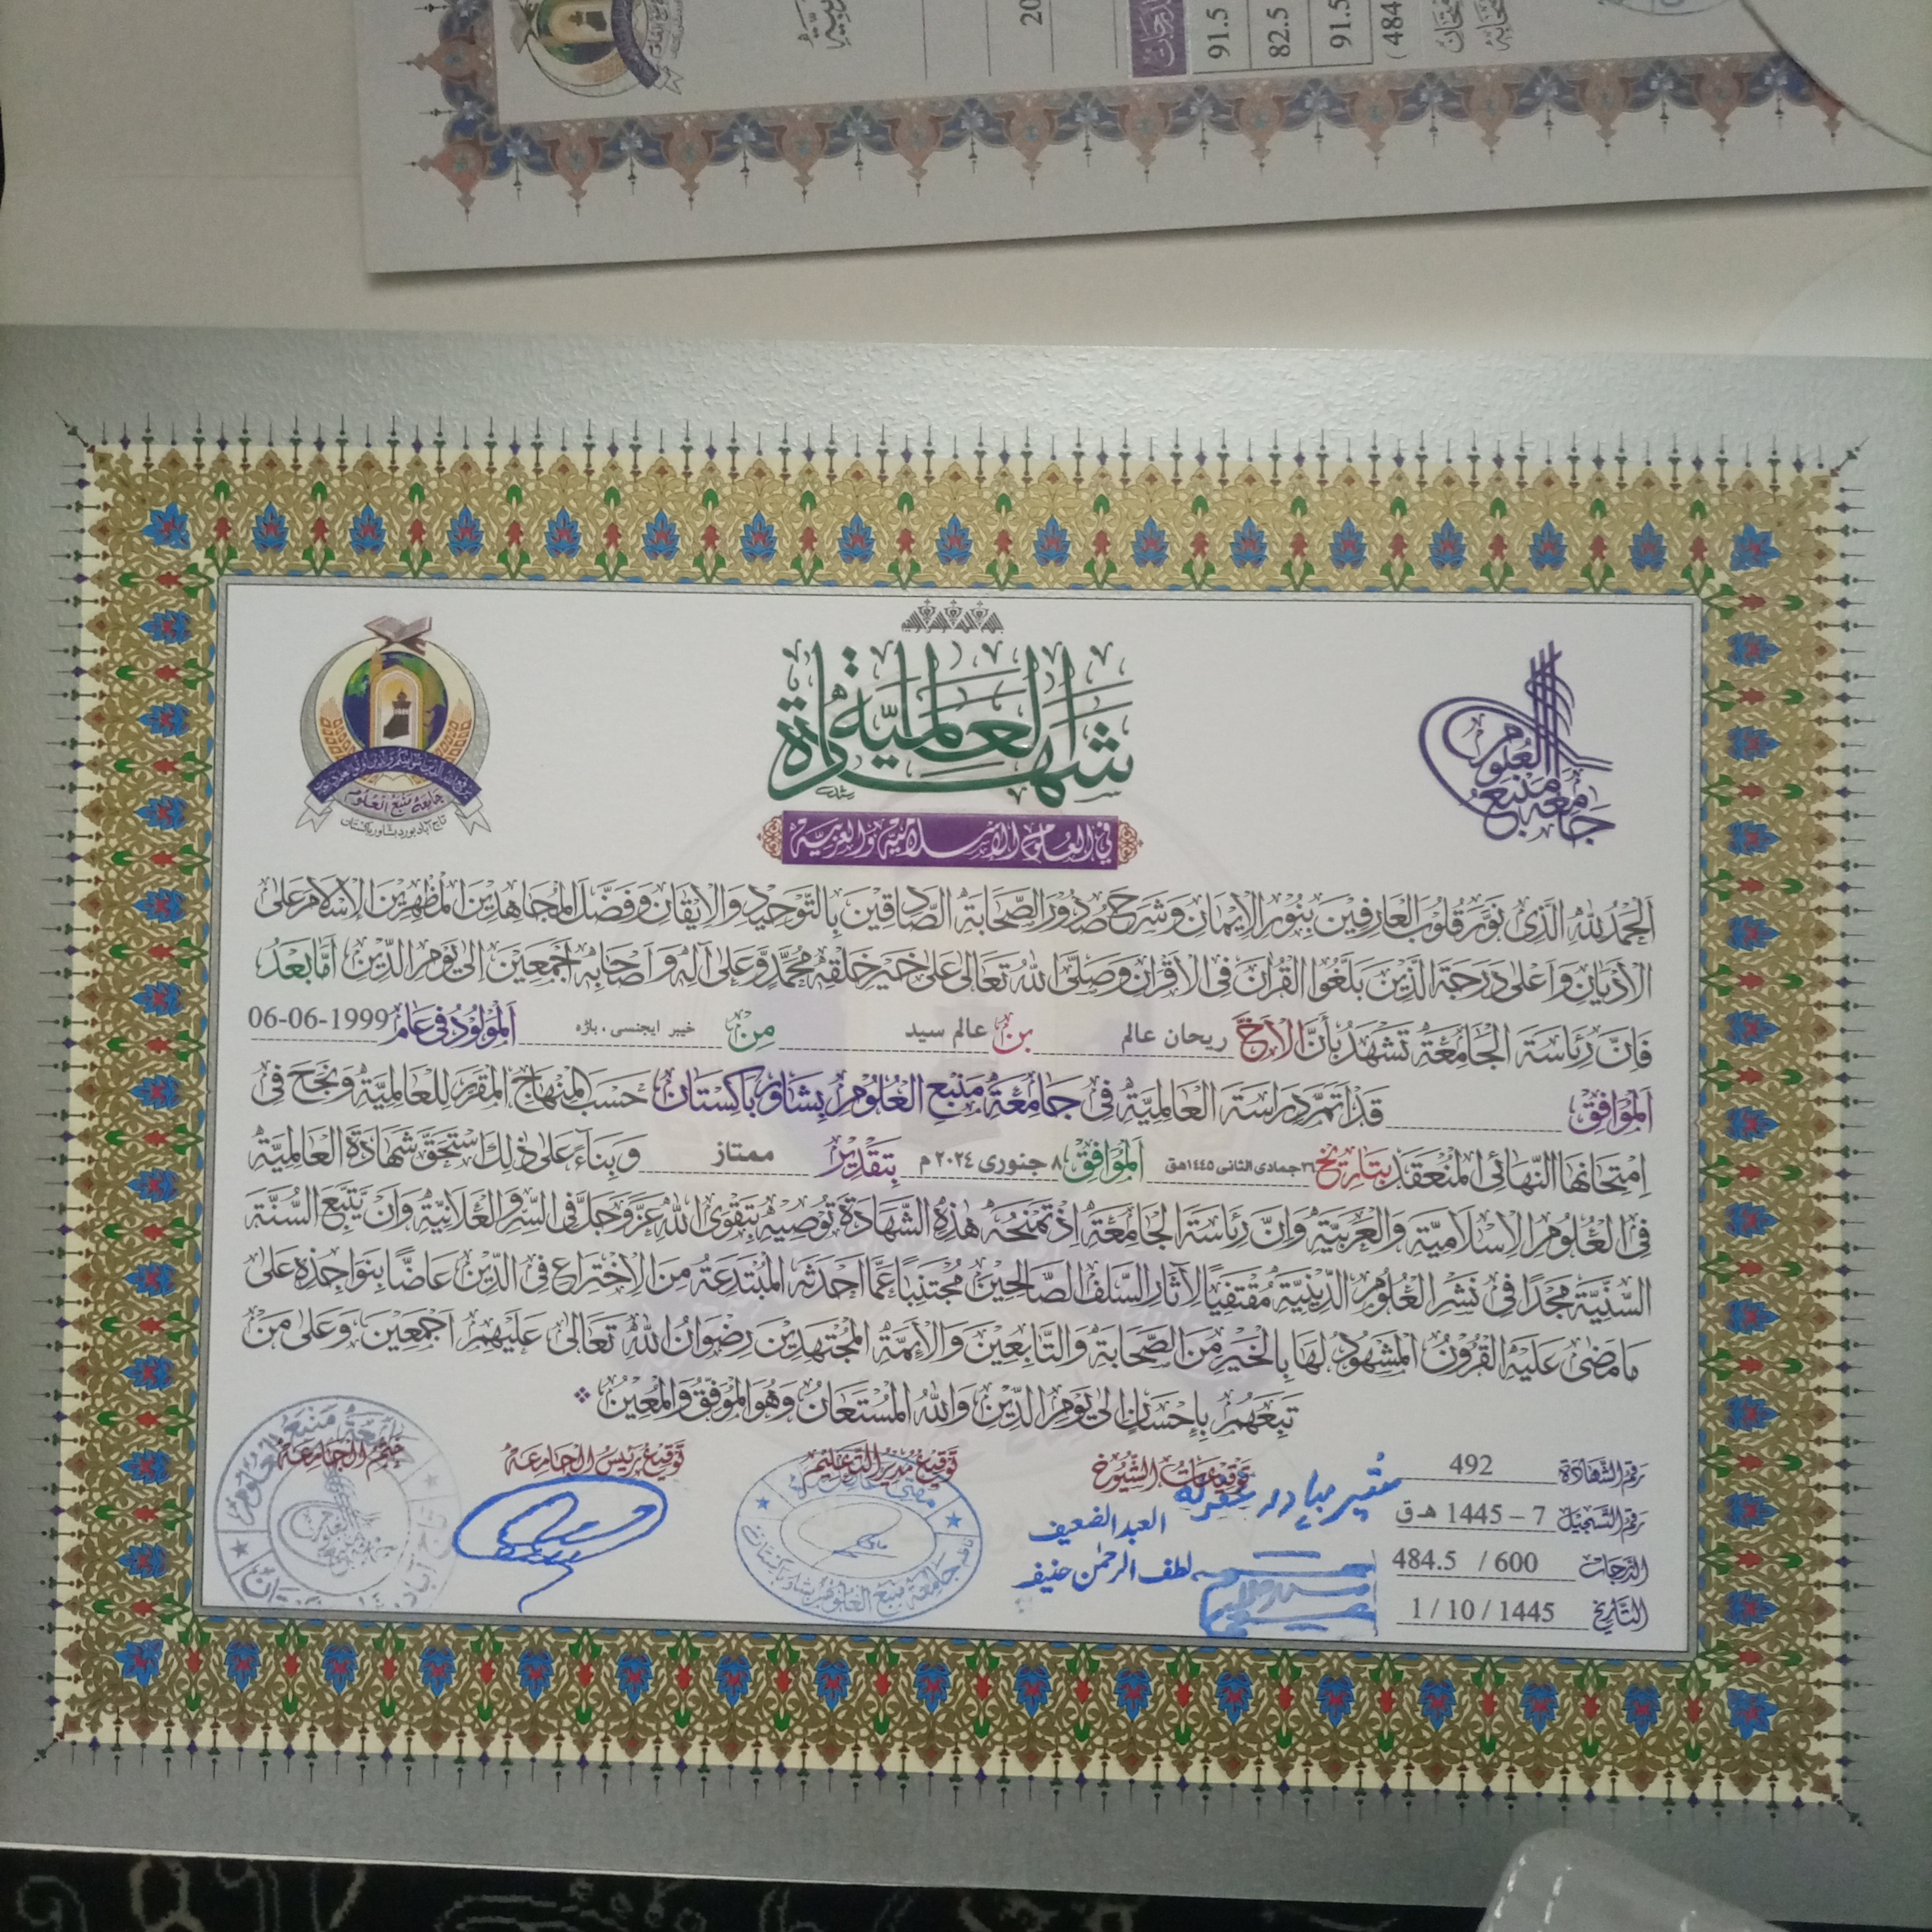 20
91.5
82.5
91.5
(484
جامعه منبع العلوم
شهادة العالمية
جامعه منبع العلوم
تاج آباد بورڈ پشاور پاکستان
في العلوم الإسلامية والعربية
اَلْحَمْدُ لِلّٰهِ الَّذِى نَوَّرَ قُلُوْبَ العَارِفِيْنَ بِنُوْرِ الاِيْمَانِ وَشَرَحَ صُدُوْرَ الصَّحَابَةِ الصَّادِقِيْنَ بِالتَّوْحِيْدِ وَالاِيْقَانِ وَفَضَّلَ الْمُجَاهِدِيْنَ الْمُظْهِرِيْنَ الاِسْلَامَ عَلىٰ
الأَدْيَانِ وَاَعْلىٰ دَرَجَةَ الَّذِيْنَ بَلَّغُوا القُرْاٰنَ فِى الأَقْرَانِ وَصَلَّى اللهُ تَعَالىٰ عَلىٰ خَيْرِ خَلْقِهٖ مُحَمَّدٍ وَّعَلىٰ آلِهٖ وَاَصْحَابِهٖ اَجْمَعِيْنَ اِلىٰ يَوْمِ الدِّيْنِ اَمَّا بَعْدُ
فَاِنَّ رِئَاسَةَ الْجَامِعَةِ تَشْهَدُ بِاَنَّ الأَخَ ريحان عالم بن عالم سيد مِنْ خيبر ايجنسی ، باڑہ اَلْمَوْلُوْدُ فِى عَامِ 06-06-1999
اَلْمُوَافِقِ قَدْ اَتَمَّ دِرَاسَةَ الْعَالِمِيَّةِ فِى جَامِعَةِ مَنْبَعِ الْعُلُوْمِ بِشَاوَر بَاكِسْتَان حَسَبَ الْمِنْهَاجِ الْمُقَرَّرِ لِلْعَالِمِيَّةِ وَنَجَحَ فِى
اِمْتِحَانِهَا النِّهَائِى الْمُنْعَقَدِ بِتَارِيْخِ ٢٦جمادى الثانى ١٤٤٥هق اَلْمُوَافِقِ ٨ جنورى ٢٠٢٤ م بِتَقْدِيْرِ ممتاز وَبِنَاءً عَلىٰ ذٰلِكَ اِسْتَحَقَّ شَهَادَةَ الْعَالِمِيَّةِ
فِى الْعُلُوْمِ الاِسْلَامِيَّةِ وَالْعَرَبِيَّةِ وَاِنَّ رِئَاسَةَ الْجَامِعَةِ اِذْ تَمْنَحُهٗ هٰذِهِ الشَّهَادَةَ تُوْصِيْهِ بِتَقْوَى اللهِ عَزَّوَجَلَّ فِى السِّرِّ وَالْعَلَانِيَّةِ وَاَنْ يَتَّبِعَ السُّنَّةَ
السَّنِيَّةَ مُجِدًّا فِى نَشْرِ الْعُلُوْمِ الدِّيْنِيَّةِ مُقْتَفِيًا لِآثَارِ السَّلَفِ الصَّالِحِيْنَ مُجْتَنِبًا عَمَّا اَحْدَثَهُ الْمُبْتَدِعَةُ مِنَ الاِخْتِرَاعِ فِى الدِّيْنِ عَاضًّا بِنَوَاجِذِهٖ عَلىٰ
مَا مَضىٰ عَلَيْهِ الْقُرُوْنُ الْمَشْهُوْدُ لَهَا بِالْخَيْرِ مِنَ الصَّحَابَةِ وَالتَّابِعِيْنَ وَالأَئِمَّةِ الْمُجْتَهِدِيْنَ رِضْوَانُ اللهِ تَعَالىٰ عَلَيْهِمْ اَجْمَعِيْنَ وَعَلىٰ مَنْ
تَبِعَهُمْ بِاِحْسَانٍ اِلىٰ يَوْمِ الدِّيْنِ وَاللهُ الْمُسْتَعَانُ وَهُوَ الْمُوَفِّقُ وَالْمُعِيْنُ
رقم الشهادة 492
توقيعات الشيوخ
توقيع مدير التعليم
توقيع رئيس الجامعة
ختم الجامعة
رقم التسجيل 7 – 1445 هـ ق
الدرجات 484.5 / 600
التاريخ 1 / 10 / 1445
العبد الضعيف
لطف الرحمٰن حنيف